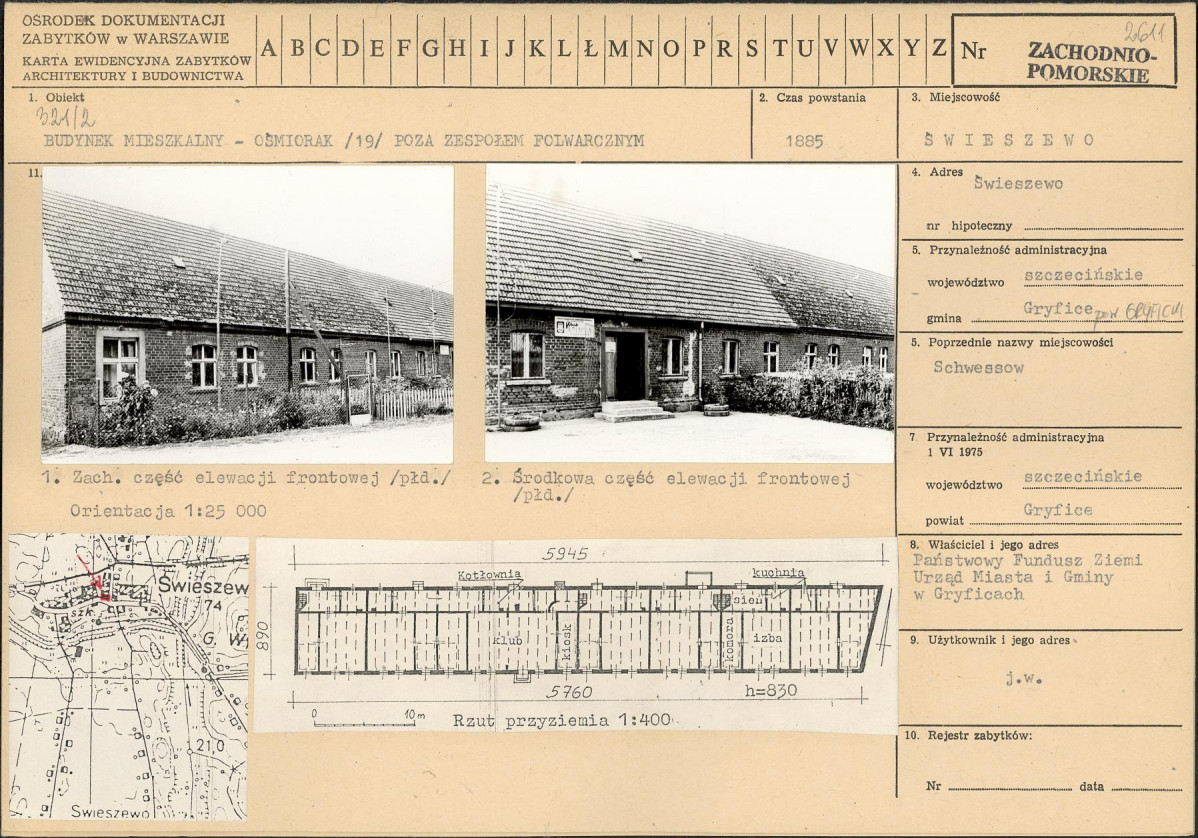 OŚRODEK DOKUMENTACJI
ZABYTKÓW w WARSZAWIE
KARTA EWIDENCYJNA ZABYTKÓW
ARCHITEKTURY I BUDOWNICTWA
A B C D E F G H I J K L Ł M N O P R S T U V W X Y Z
Nr
2611
ZACHODNIO-
POMORSKIE
1. Obiekt
321/2
BUDYNEK MIESZKALNY - OŚMIORAK /19/ POZA ZESPOŁEM FOLWARCZNYM
2. Czas powstania
1885
3. Miejscowość
Ś W I E S Z E W O
11.
1. Zach. część elewacji frontowej /płd./
2. Środkowa część elewacji frontowej
/płd./
Orientacja 1:25 000
Świeszew
74
szk.
G. W
21,0
Świeszewo
5945
Kotłownia
kuchnia
sień
890
klub
kiosk
komora
izba
5760
h=830
0 10 m
Rzut przyziemia 1:400
4. Adres
Świeszewo
nr hipoteczny
5. Przynależność administracyjna
województwo szczecińskie
gmina Gryfice pow GRYFICKI
5. Poprzednie nazwy miejscowości
Schwessow
7. Przynależność administracyjna
1 VI 1975
województwo szczecińskie
powiat Gryfice
8. Właściciel i jego adres
Państwowy Fundusz Ziemi
Urząd Miasta i Gminy
w Gryficach
9. Użytkownik i jego adres
j.w.
10. Rejestr zabytków:
Nr data